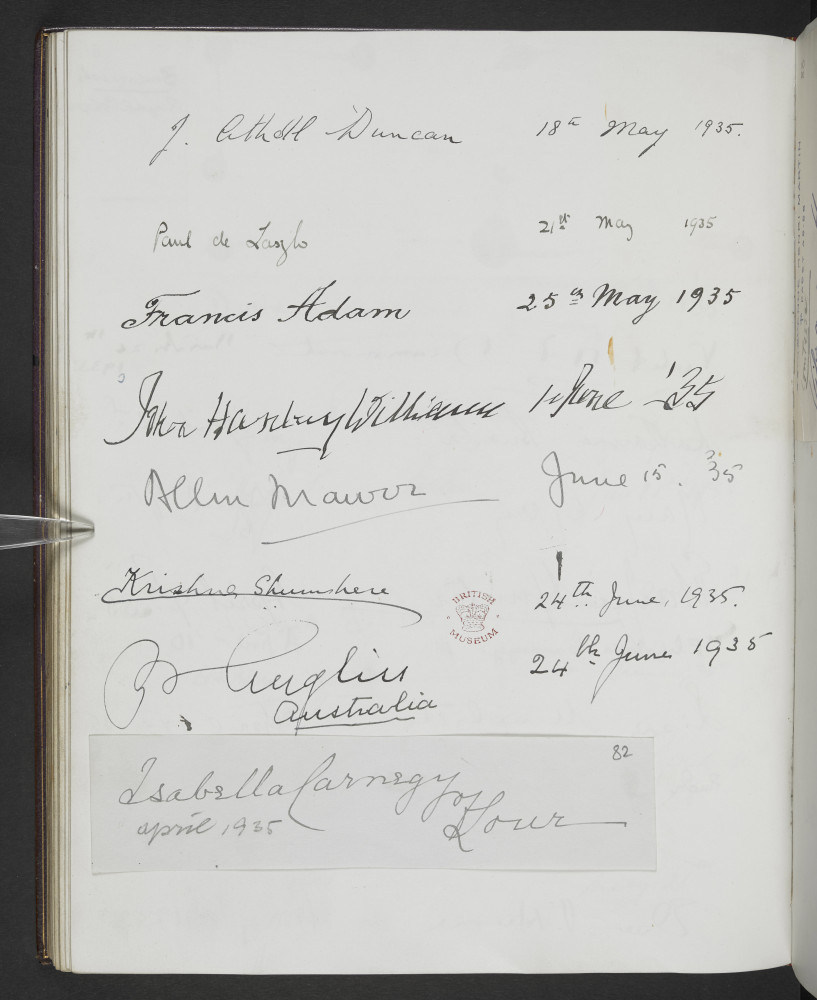 J. Atholl Duncan 18th May 1935.
Paul de Laszlo 21st May 1935
Francis Adam 25th May 1935
John Hanbury Williams 1 June '35
Allen Mawer June 15. 35
Krishna Shumshere 24th June, 1935.
24th June 1935
Australia
BRITISH
MUSEUM
82
Isabella Carnegy of Lour
april 1935